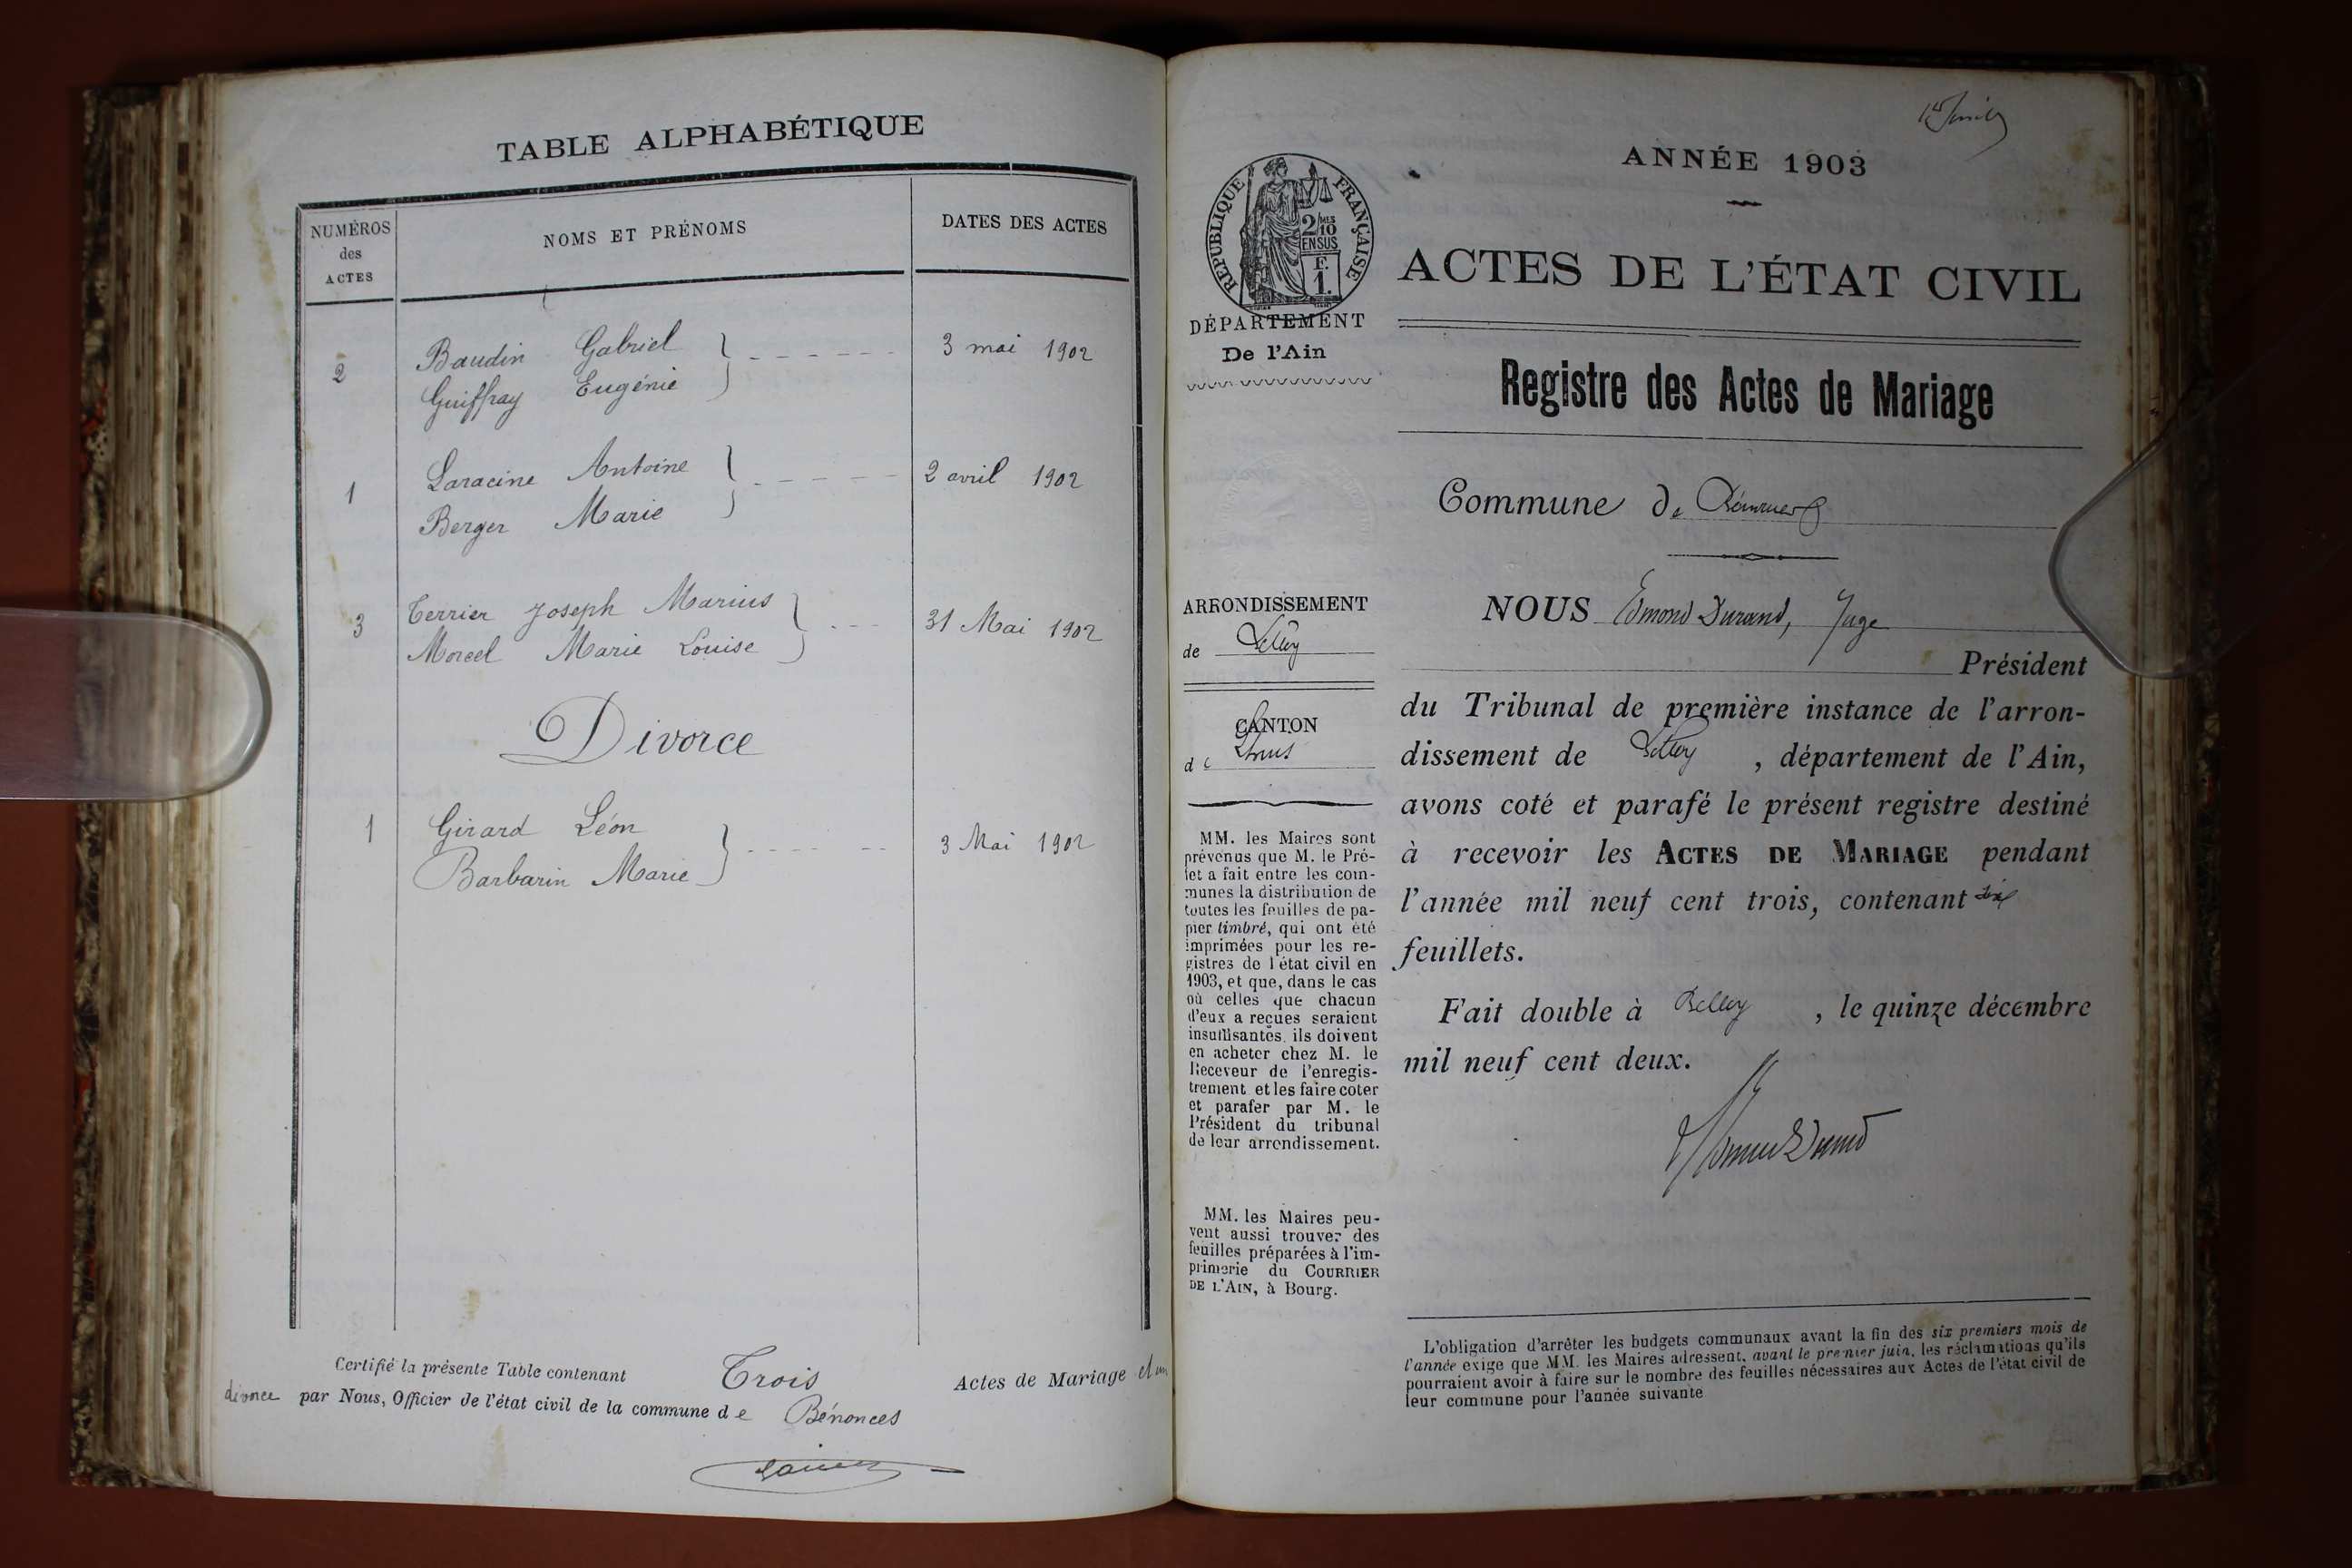 TABLE ALPHABÉTIQUE
NUMÉROS
des
ACTES
NOMS ET PRÉNOMS
DATES DES ACTES
2
Baudin Gabriel
Guiffray Eugénie
3 mai 1902
1
Laracine Antoine
Berger Marie
2 avril 1902
3
Terrier Joseph Marius
Morcel Marie Louise
31 Mai 1902
Divorce
1
Girard Léon
Barbarin Marie
3 Mai 1902
Certifié la présente Table contenant Trois Actes de Mariage et un
divorce par Nous, Officier de l'état civil de la commune de Bénonces
1er
ANNÉE 1903
RÉPUBLIQUE FRANÇAISE
2/10MES
EN SUS
F.
1.
ACTES DE L'ÉTAT CIVIL
DÉPARTEMENT
De l'Ain
Registre des Actes de Mariage
Commune de Bénonces
ARRONDISSEMENT
de Belley
CANTON
de Lhuis
MM. les Maires sont
prévenus que M. le Pré-
fet a fait entre les com-
munes la distribution de
toutes les feuilles de pa-
pier timbré, qui ont été
imprimées pour les re-
gistres de l'état civil en
1903, et que, dans le cas
où celles que chacun
d'eux a reçues seraient
insuffisantes, ils doivent
en acheter chez M. le
Receveur de l'enregis-
trement et les faire coter
et parafer par M. le
Président du tribunal
de leur arrondissement.
MM. les Maires peu-
vent aussi trouver des
feuilles préparées à l'im-
primerie du COURRIER
DE L'AIN, à Bourg.
NOUS Edmond Durand, Juge
Président
du Tribunal de première instance de l'arron-
dissement de Belley, département de l'Ain,
avons coté et parafé le présent registre destiné
à recevoir les ACTES DE MARIAGE pendant
l'année mil neuf cent trois, contenant
feuillets.
Fait double à Belley, le quinze décembre
mil neuf cent deux.
Edmond Durand
L'obligation d'arrêter les budgets communaux avant la fin des six premiers mois de
l'année exige que MM. les Maires adressent, avant le premier juin, les réclamations qu'ils
pourraient avoir à faire sur le nombre des feuilles nécessaires aux Actes de l'état civil de
leur commune pour l'année suivante